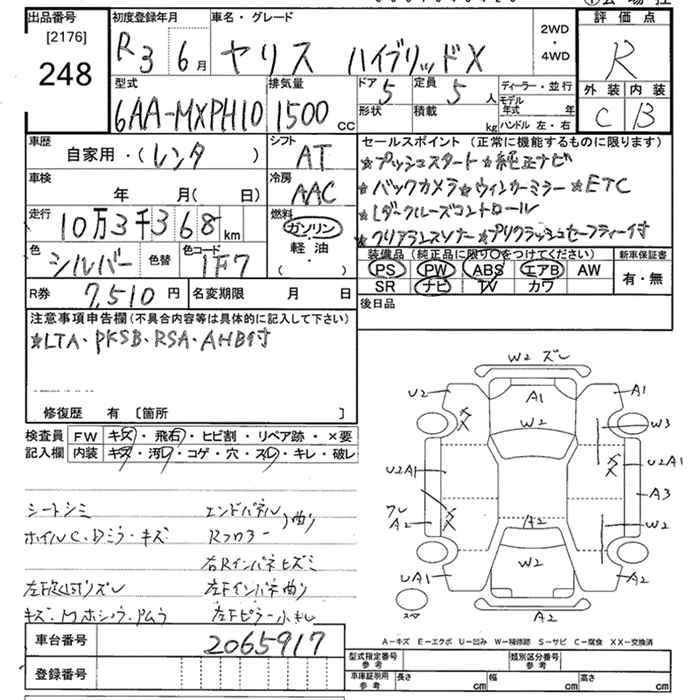 出品番号 初度登録年月 車名・グレード 評価点
[2176] 248
R3 6月 ヤリス ハイブリッドX 2WD・4WD R
型式 排気量 ドア 定員 ディーラー・並行 外装 内装
6AA-MXPH10 1500cc 5 5人 モデル年式 年 C B
形状 積載 kg ハンドル 左・右
車歴 シフト セールスポイント (正常に機能するものに限ります)
自家用・(レンタ) AT ☆プッシュスタート☆純正ナビ
車検 冷房 ☆バックカメラ☆ウィンカーミラー☆ETC
年 月(日) AAC ☆レーダークルーズコントロール
走行 燃料 ☆クリアランスソナー☆プリクラッシュセーフティー付
10万3千368km ガソリン・軽油 (・)
色 色替 色コード 装備品 (純正品に限り○をつけてください) 新車保証書
シルバー 1F7 PS PW ABS エアB AW 有・無
R券 7,510円 名変期限 月 日 SR ナビ TV カワ
注意事項申告欄 (不具合内容等は具体的に記入して下さい) 後日品
☆LTA・PKSB・RSA・AHB付
修復歴 有 [箇所 ]
検査員 FW キズ・飛石・ヒビ割・リペア跡・×要
記入欄 内装 キズ・汚レ・コゲ・穴・スレ・キレ・破レ
シートシミ エンドパネル
曲り
ホイルC・Dミラーキズ Rフロアー
右Rインパネヒズミ
左Fインパネ曲り
左Fピラー
W2 ズレ
U2 A1 A1
W2 W3
U2A1 U2A1
A3
A2 A2 W2
W2
UA1 A2
スペア A2
A-キズ E-エクボ U-凹み W-補修跡 S-サビ C-腐食 XX-交換済
車台番号 2065917
型式指定番号 参考 類別区分番号 参考
登録番号 車庫証明用 参考 長さ cm 幅 cm 高さ cm